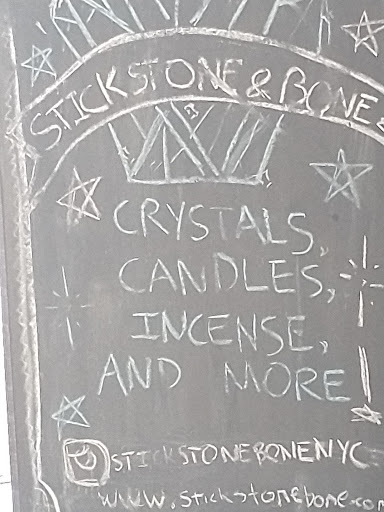 STICK STONE & BONE
CRYSTALS,
CANDLES,
INCENSE,
AND MORE!
STICKSTONEBONENYC
www.stickstonebone.com